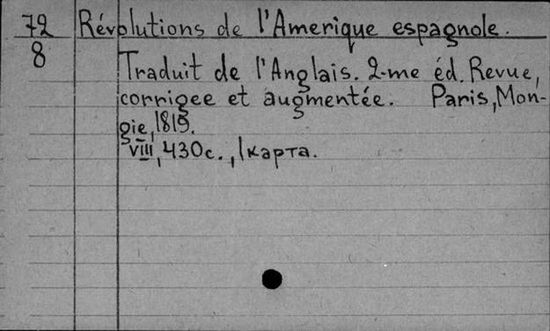 72 Révolutions de l'Amerique espagnole.
8 Traduit de l'Anglais. 2-me éd. Revue,
corrigee et augmentée. Paris, Mon-
gie, 1819.
VIII, 430c., 1 карта.